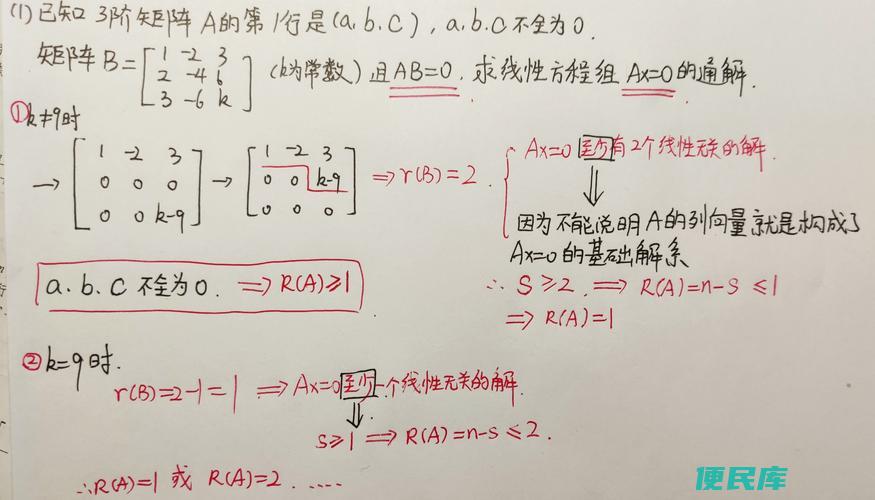 (1) 已知 3阶矩阵 A的第1行是(a,b,c), a.b.c不全为0.
矩阵B=[1 -2 3
2 -4 6
3 -6 k] (k为常数) 且AB=0. 求线性方程组 Ax=0的通解.
①k≠9时
→ [1 -2 3
0 0 0
0 0 k-9] → [1 -2 3
0 0 k-9
0 0 0] ⇒r(B)=2.
Ax=0至少有2个线性无关的解.
⇓
因为不能说明A的列向量就是构成了
Ax=0的基础解系
a.b.c不全为0. ⇒R(A)≥1
∴ S≥2. ⇒ R(A)=n-s≤1
⇒ R(A)=1
②k=9时.
r(B)=2-1=1 ⇒Ax=0至少一个线性无关的解.
⇓
S≥1 ⇒R(A)=n-s≤2.
∴R(A)=1 或 R(A)=2. .....
便民库